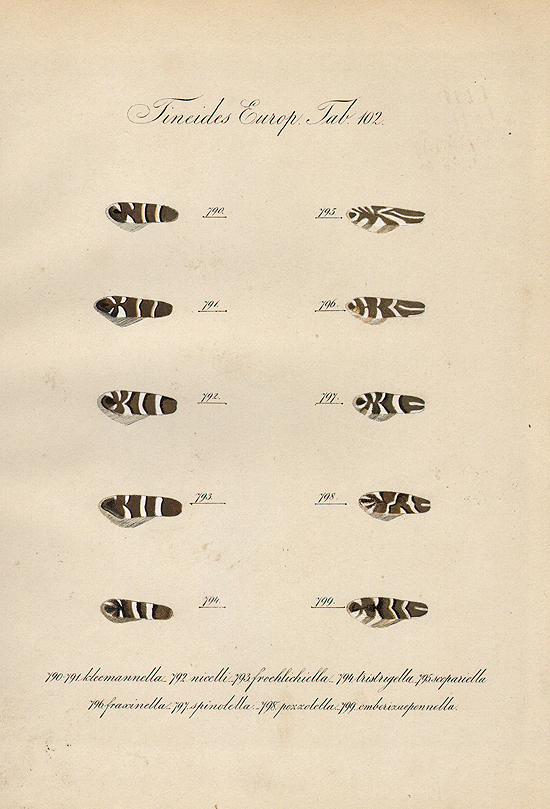 Tineides Europ. Tab. 102.
790.
795.
791.
796.
792.
797.
793.
798.
794.
799.
790-791. kleemannella. 792 nicelli. 793 froehlichiella. 794 tristrigella. 795 scopariella
796 fraxinella. 797. spinolella. 798 pezzolella. 799. emberizaepennella.